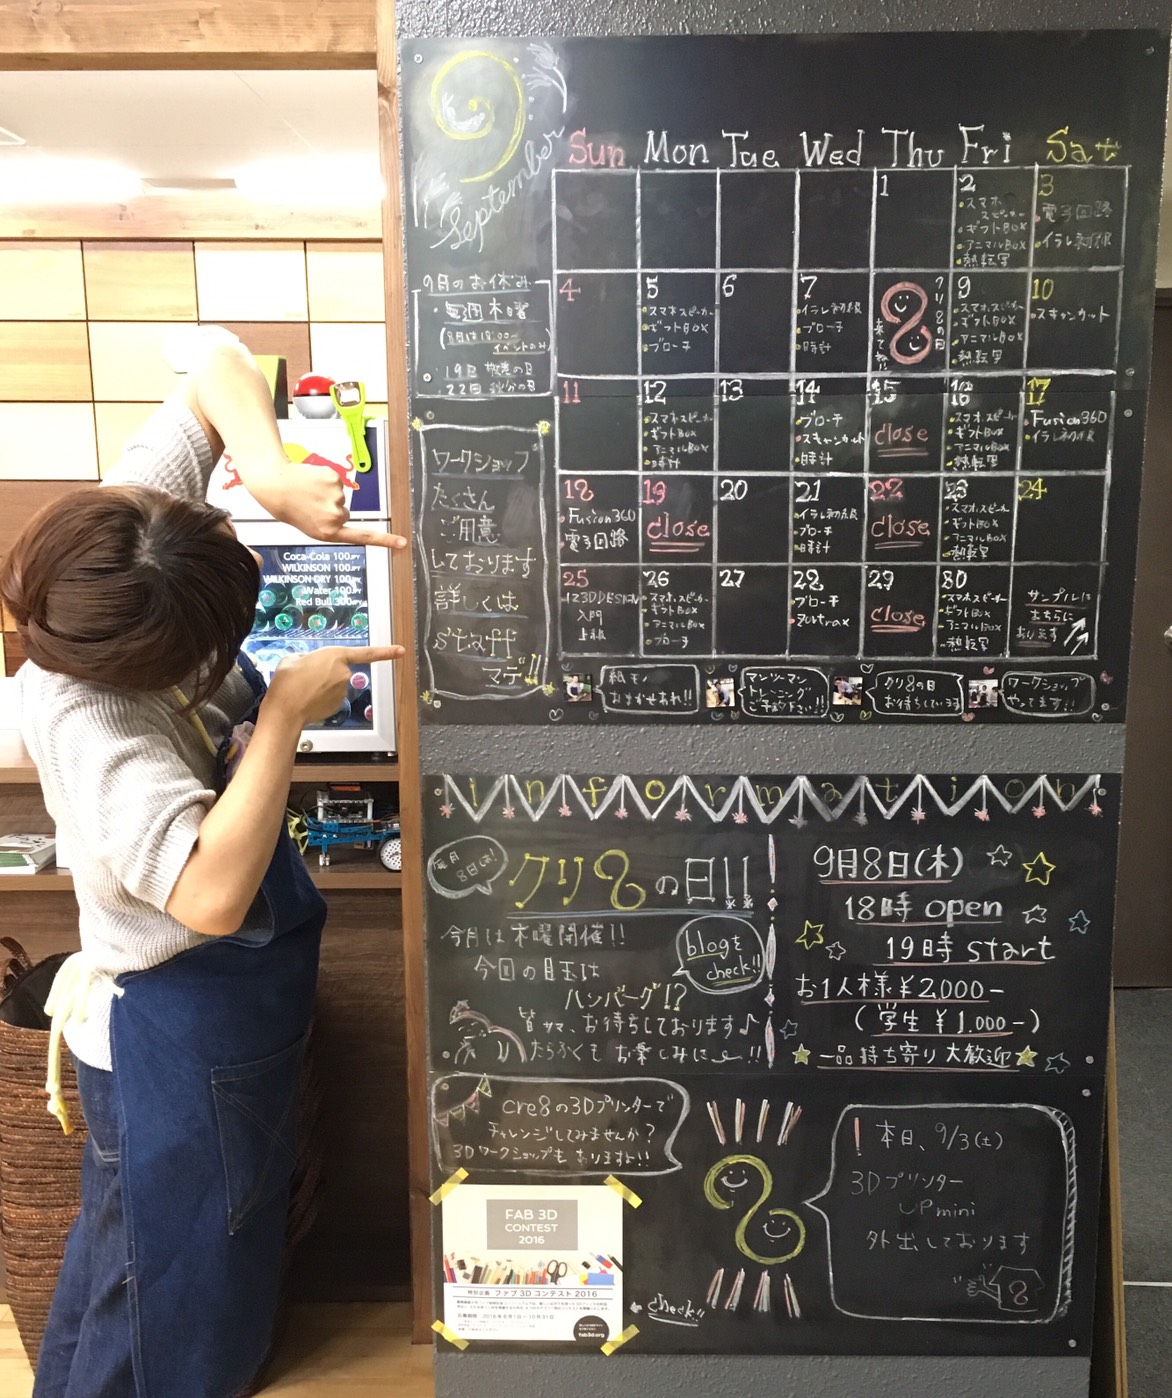 9
September
Sun Mon Tue Wed Thu Fri Sat
1
2
スマホ
スピーカー
ギフトBOX
アニマルBOX
熱転写
3
電子回路
イラレ初級
4
5
スマホスピーカー
ギフトBOX
ブローチ
6
7
イラレ初級
ブローチ
時計
8
クリ8の日
9
スマホスピーカー
ギフトBOX
アニマルBOX
熱転写
10
スキャンカット
11
12
スマホスピーカー
ギフトBOX
アニマルBOX
時計
13
14
ブローチ
スキャンカット
時計
15
close
16
スマホスピーカー
ギフトBOX
アニマルBOX
熱転写
17
Fusion360
イラレ初級
18
Fusion360
電子回路
19
close
20
21
イラレ初級
ブローチ
時計
22
close
23
スマホスピーカー
ギフトBOX
アニマルBOX
熱転写
24
25
123DDESIGN
入門
上級
26
スマホスピーカー
ギフトBOX
アニマルBOX
ブローチ
27
28
ブローチ
29
close
30
スマホスピーカー
ギフトBOX
アニマルBOX
熱転写
サンプルは
こちらに
あります
9月のお休み
毎週木曜
(8日は18:00〜
イベントのみ)
19日 敬老の日
22日 秋分の日
ワークショップ
たくさん
ご用意
しております
詳しくは
staff
マデ!!
紙モノ
おまかせあれ!!
マンツーマン
トレーニング
ご予約下さい!!
クリ8の日
お待ちしています
ワークショップ
やってます!!
Coca-Cola 100JPY
WILKINSON 100JPY
WILKINSON DRY 100JPY
Water 100JPY
Red Bull 300JPY
information
毎月
8日は!
クリ8の日!!
今月は木曜開催!!
今回の目玉は
ハンバーグ!?
blogを
check!!
皆サマ、お待ちしております♪
たらふくもお楽しみに〜!!
9月8日(木)
18時 open
19時 start
お1人様¥2,000-
(学生¥1,000-)
一品持ち寄り大歓迎
cre8の3Dプリンターで
チャレンジしてみませんか?
3Dワークショップもありますよ!!
FAB 3D
CONTEST
2016
特別企画 ファブ3Dコンテスト2016
fab3d.org
check!!
! 本日、9/3(土)
3Dプリンター
UPmini
外出しております
8